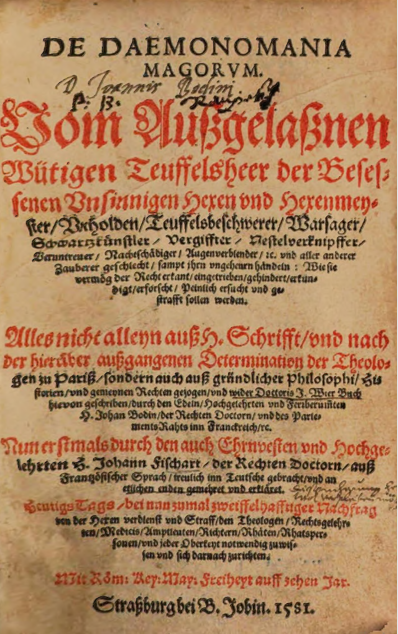 DE DAEMONOMANIA
MAGORVM.
D. Joannis Bodini
Vom Außgelaßnen
Wütigen Teuffelsheer der Beses-
senen Unsinnigen Hexen und Hexenmey-
ster/ Unholden/ Teuffelsbeschwerer/ Warsager/
Schwartzkünstler/ Vergiffter/ Nestelverknipffer/
Veruntreuer/ Nachtschädiger/ Augenverblender/ ꝛc. und aller anderer
Zauberer geschlecht/ sampt ihren ungeheurn händeln: Wie sie
vermög der Recht erkant/ eingetrieben/ gehindert/ erkün-
digt/ erforscht/ Peinlich ersucht und ge-
strafft sollen werden.
Alles nicht alleyn auß H. Schrifft/ und nach
der hierüber außgangenen Determination der Theolo-
gen zu Pariß/ sondern auch auß gründlicher Philosophi/ His
storien/ und gemeynen Rechten gezogen/ und wider Doctoris J. Wier Buch
hievon geschriben/ durch den Edeln/ Hochgelehrten und Feriberiumten
H. Johan Bodin/ der Rechten Doctorn/ und des Parle-
ments Rahts inn Franckreich/ ꝛc.
Nun erstmals durch den auch Ehrnvesten und Hochge-
lehrten H. Johann Fischart/ der Rechten Doctorn/ auß
Frantzösischer Sprach/ treulich inn Teutsche gebracht/ und an
etlichen enden gemehret und erkläret.
Heutigs Tags/ bei nun zumal zweiffelhafftiger Nachfrag
von der Hexen verdienst und Straff/ den Theologen/ Rechtsgelehr-
ten/ Medicis/ Amptleuten/ Richtern/ Rhäten/ Rhatsper-
sonen/ und jeder Oberkeyt notwendig zuwis-
sen und sich darnach zurichten.
Mit Röm: Key: May: Freiheyt auff zehen Jar.
Straßburg bei B. Jobin. 1581.